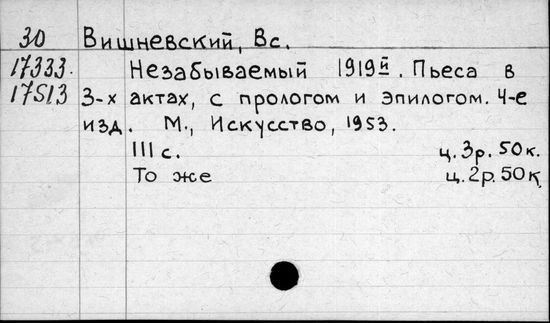 30 Вишневский, Вс.
17333. Незабываемый 1919й. Пьеса в
17513 3-х актах, с прологом и эпилогом. 4-е
изд. М., Искусство, 1953.
III с. ц. 3р. 50к.
То же ц. 2р. 50к